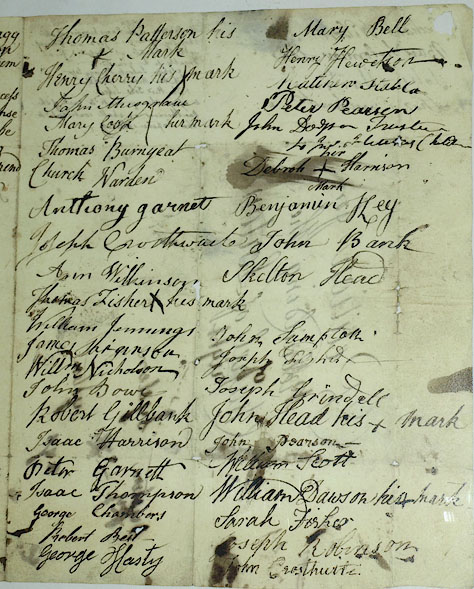 Thomas Patterson his
+ Mark
Henry Cherry his X mark
John Musgrave
Mary Cook ( her mark
Thomas Burnyeat
Church Warden
Anthony garnet
Joseph Crosthwaite
Ann Wilkinson
Thomas Fisher X his mark
William Jennings
James
Willm Nicholson
John Bowe
Robert Gillbank
Isaac Harrison
Peter Garnett
Isaac Thompson
George Chambers
Robert Bell
George Hasty
Mary Bell
Henry Hewetson
Peter Pearson
John Dodgson Trustee
to
her
Debroh + Harrison
Mark
Benjamin Key
John Bank
Skelton Head
John Sampton
Joseph Fisher
Joseph Grindell
John Head his + mark
John Pearson
William Scott
William Dawson his + mark
Sarah Fisher
Joseph Robinson
John